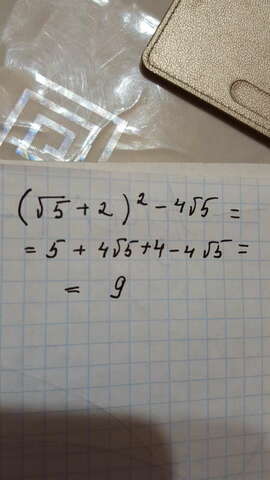 (√5 + 2)² - 4√5 =
= 5 + 4√5 + 4 - 4√5 =
= 9